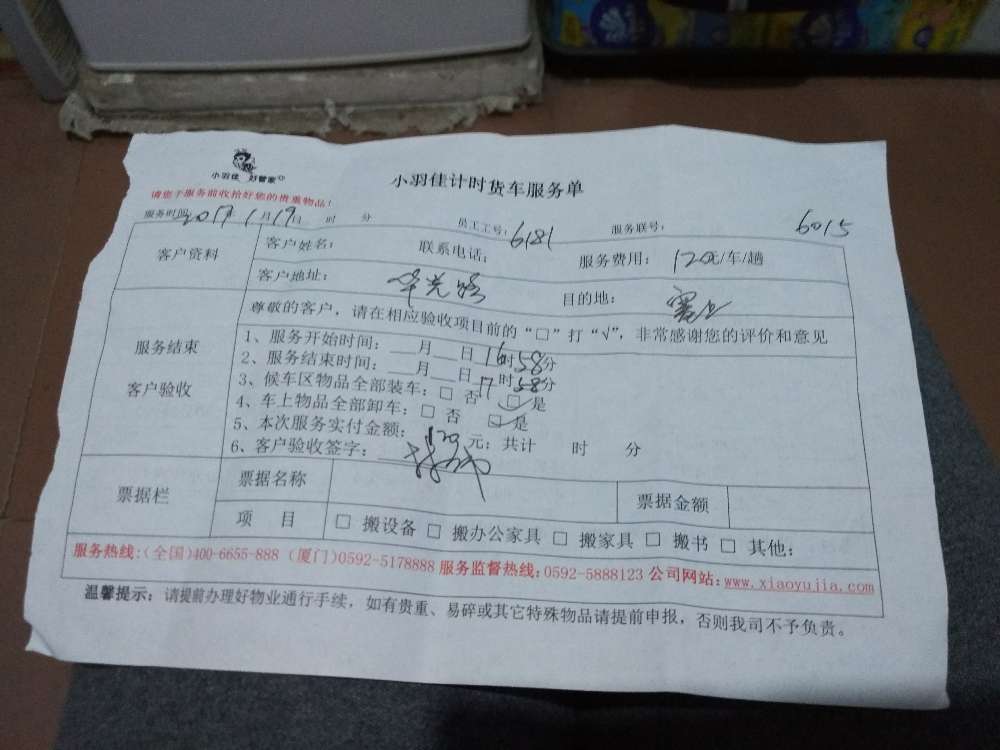 小羽佳 好管家
小羽佳计时货车服务单
请您于服务前收拾好您的贵重物品！
服务时间：2017年1月19日 时 分 员工工号：6181 服务联号：6015
客户资料 客户姓名： 联系电话： 服务费用：120元/车/趟
客户地址：华光路 目的地：
尊敬的客户，请在相应验收项目前的“□”打“√”，非常感谢您的评价和意见
服务结束
客户验收
1、服务开始时间：___月___日16时58分
2、服务结束时间：___月___日17时58分
3、候车区物品全部装车：□ 否 ☑是
4、车上物品全部卸车：□ 否 ☑是
5、本次服务实付金额：120元；共计 时 分
6、客户验收签字：
票据栏 票据名称 票据金额
项 目 □ 搬设备 □ 搬办公家具 □ 搬家具 □ 搬书 □ 其他：
服务热线：(全国)400-6655-888 (厦门)0592-5178888 服务监督热线：0592-5888123 公司网站：www.xiaoyujia.com
温馨提示：请提前办理好物业通行手续，如有贵重、易碎或其它特殊物品请提前申报，否则我司不予负责。